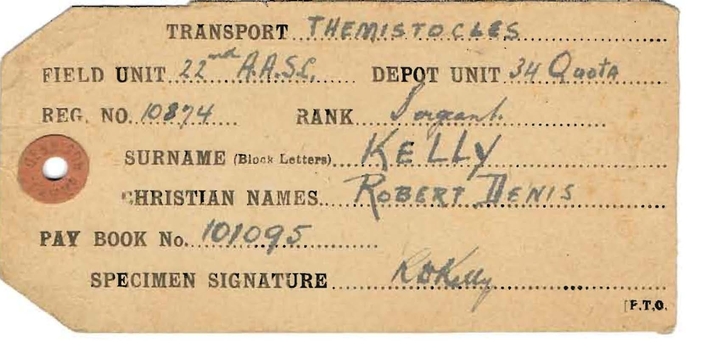 TRANSPORT THEMISTOCLES
FIELD UNIT 22nd A.A.S.C. DEPOT UNIT 34 Quota
REG. NO. 10874 RANK Sergeant.
SURNAME (Block Letters) KELLY
CHRISTIAN NAMES ROBERT DENIS
PAY BOOK No. 101095
SPECIMEN SIGNATURE R D Kelly
[P.T.O.